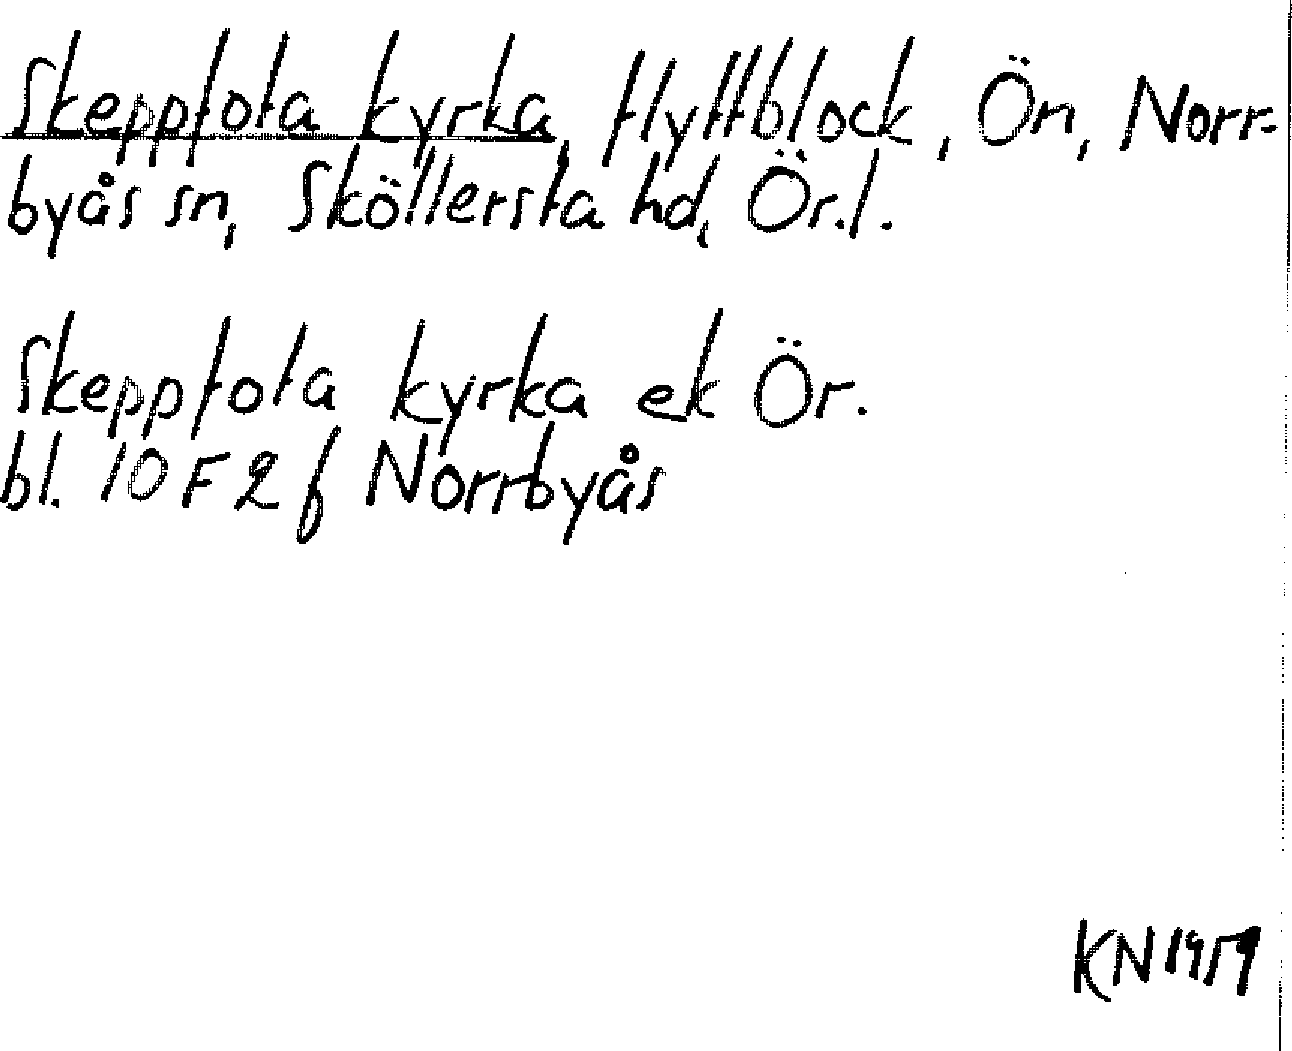 Skeppfota kyrka, flyttblock, Ön, Norr-
byås sn, Sköllersta hd, Ör.l.
Skeppfota kyrka ek Ör.
bl. 10 F 2 f Norrbyås
KN 1959